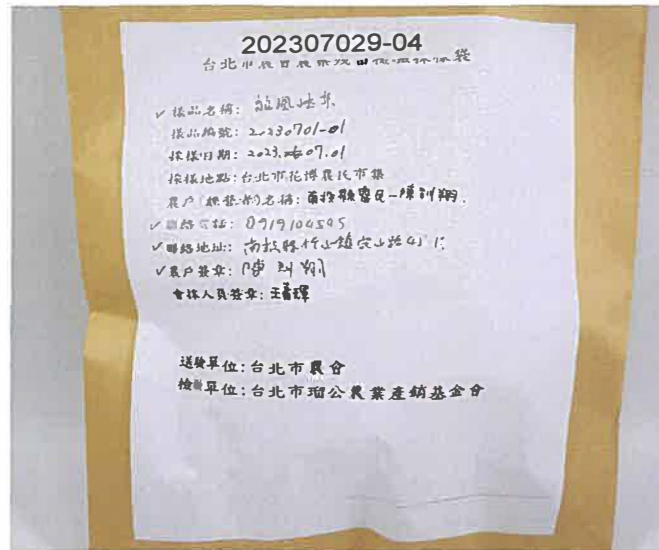 202307029-04
台北市農會農藥殘留檢驗採樣袋
✓樣品名稱:
樣品編號: 20230701-01
採樣日期: 2023.07.01
採樣地點:台北市花博農民市集
農戶(標藝術)名稱: 南投縣農民-陳訓翔.
✓聯絡電話: 0919104595
✓聯絡地址: 南投縣竹山鎮
✓農戶簽章: 陳訓翔
會採人員簽章:
送驗單位:台北市農會
檢驗單位:台北市瑠公農業產銷基金會